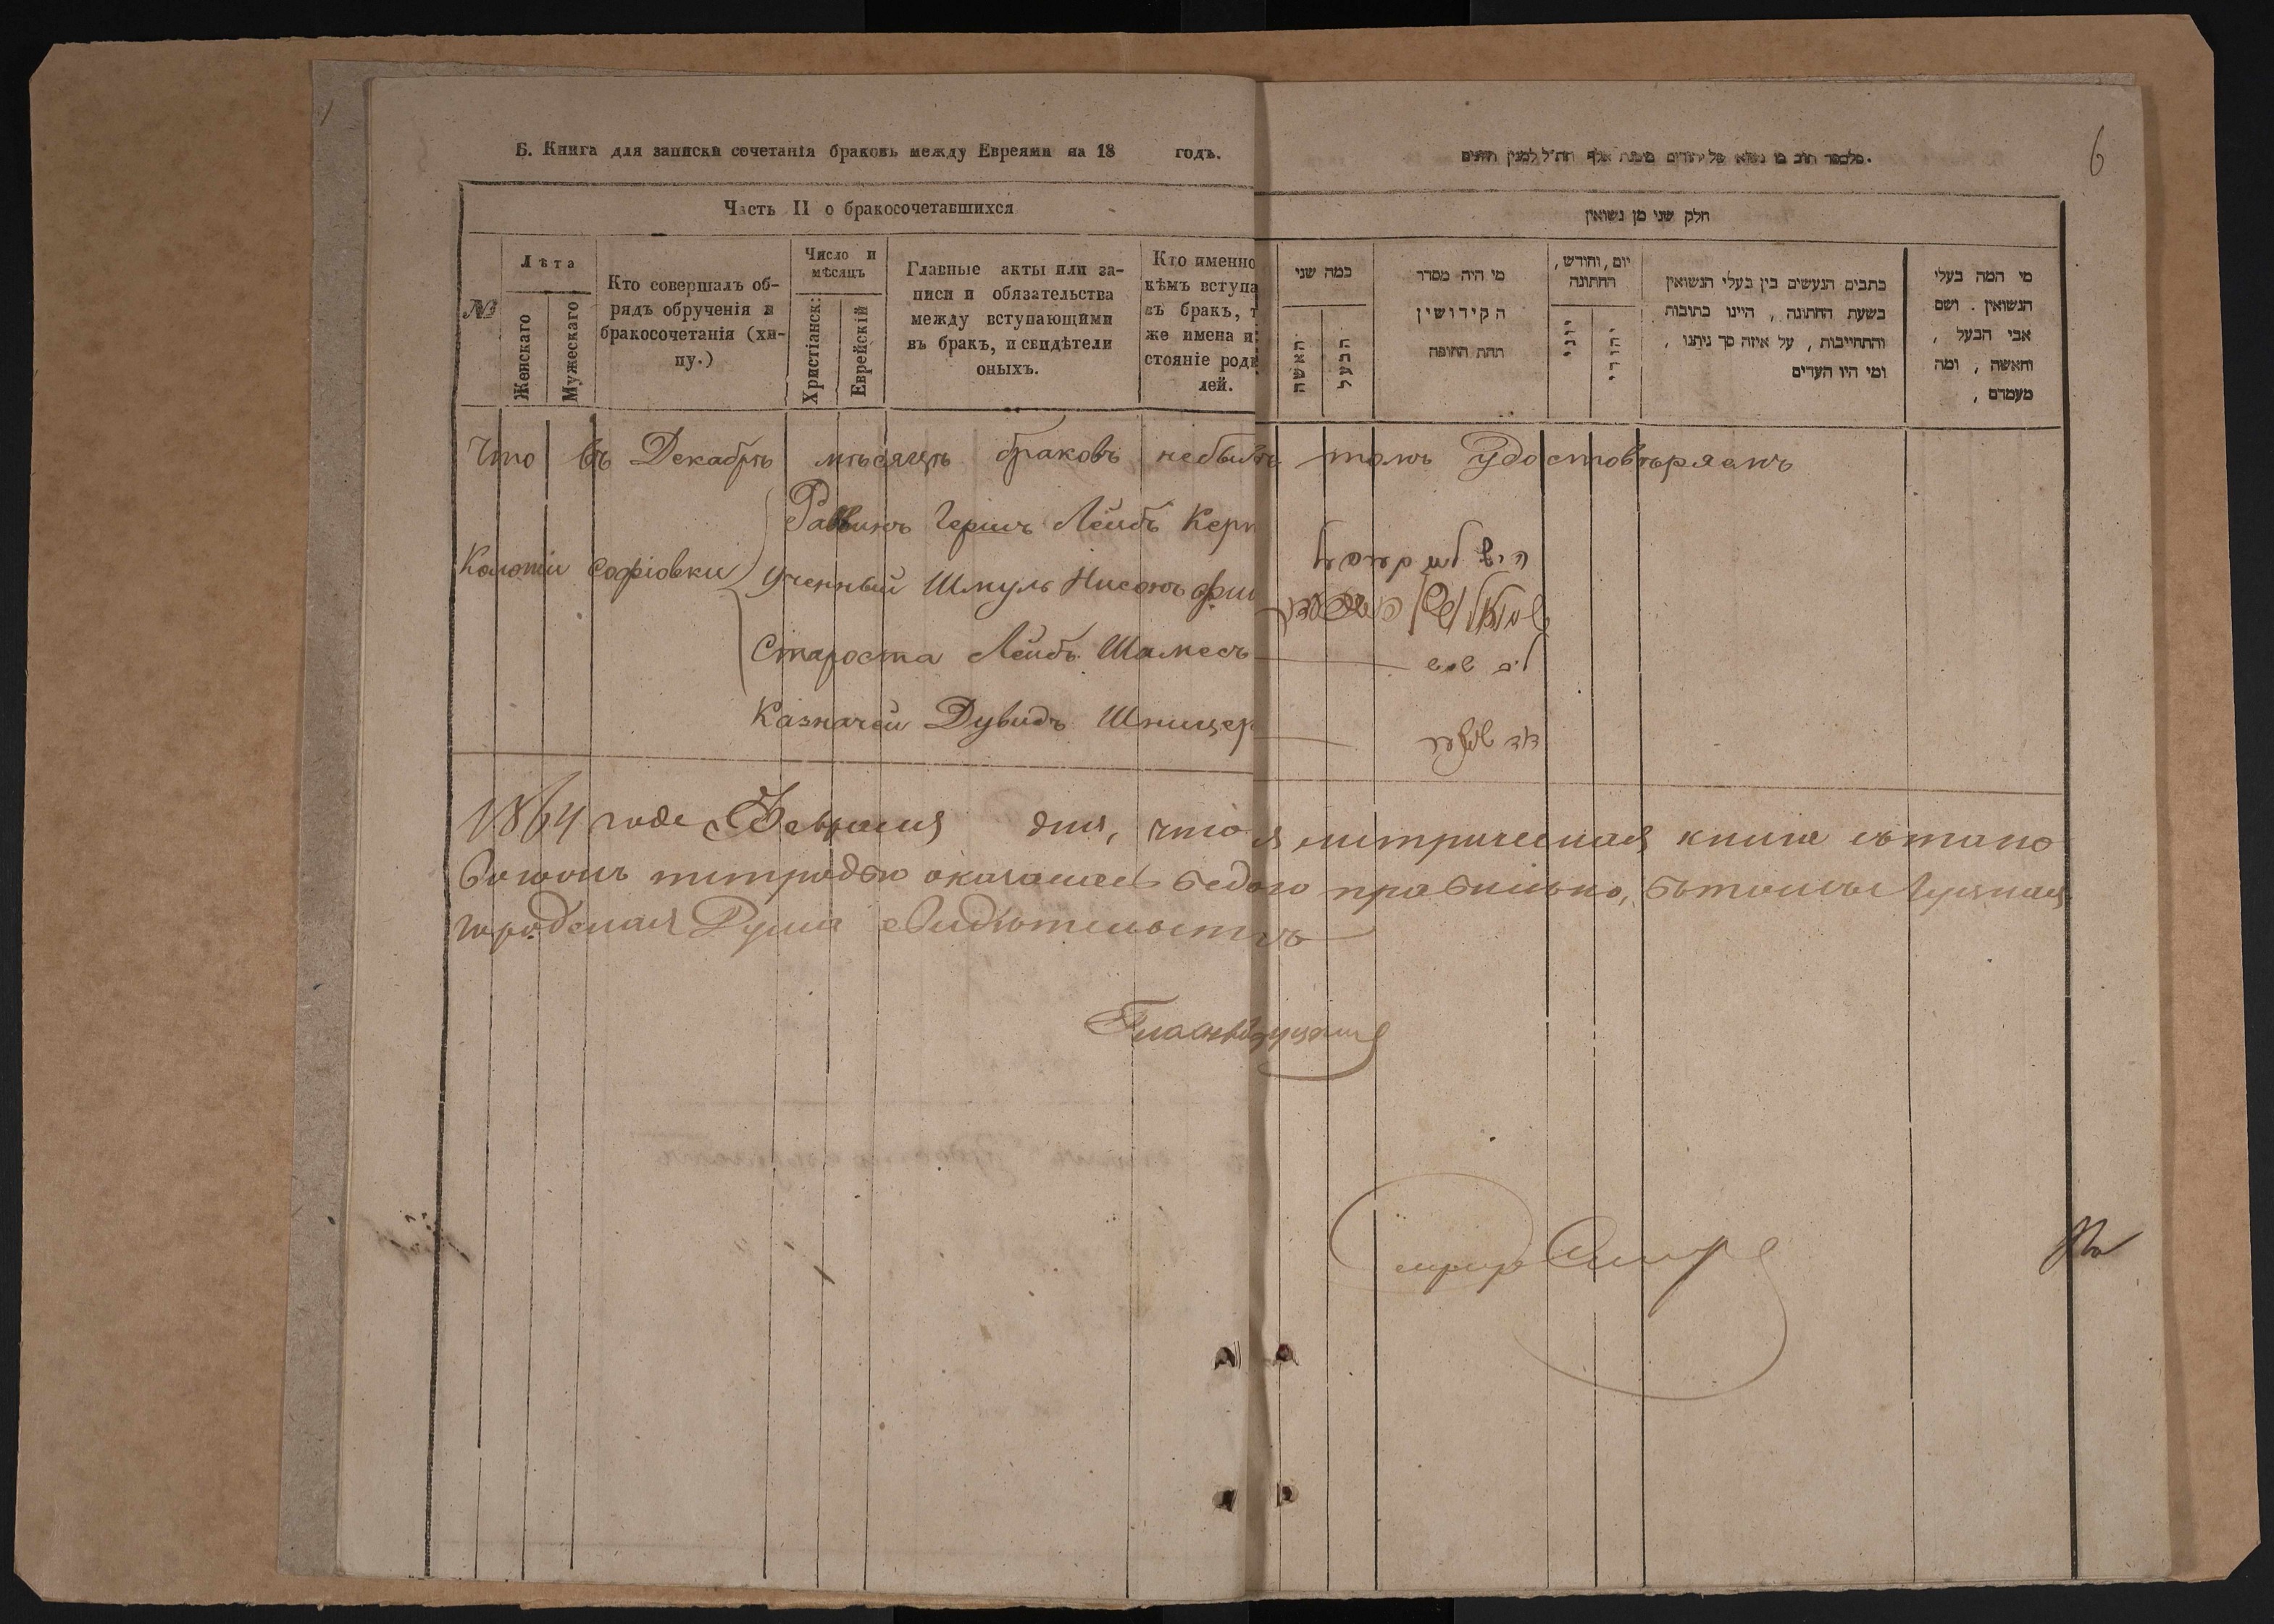 Б. Книга для записки сочетанія браковъ между Евреями на 18 годъ.
6
Часть II о бракосочетавшихся
חלק שני מן נשואין
№
Лѣта
Женскаго
Мужескаго
Кто совершалъ об-
рядъ обрученія и
бракосочетанія (хи-
пу.)
Число и
мѣсяцъ
Христіанск:
Еврейскій
Главные акты или за-
писи и обязательства
между вступающими
въ бракъ, и свидѣтели
оныхъ.
Кто именно
кѣмъ вступа
въ бракъ, т
же имена и
стояніе роди
лей.
כמה שני
האשה
הבעל
מי היה מסדר
הקידושין
תחת החופה
יום, וחודש,
החתונה
יוני
יהודי
כתבים הנעשים בין בעלי הנשואין
בשעת החתונה, היינו כתובות
והתחייבות, על איזה סך ניתנו,
ומי היו העדים
מי המה בעלי
הנשואין. ושם
אבי הבעל,
והאשה, ומה
מעמדם,
Что въ Декабрѣ мѣсяцѣ браковъ небыло томъ Удостовѣряемъ
Колоніи Софіовки
Раввинъ Гершъ Лейбъ Керн
Ученный Шмуль Нисонъ Фиш
Староста Лейбъ Шамесъ
ליב שמש
Казначей Дувидъ Шницер
דוד שניצער
1864 года Февраля дня, что я метрическая книга съ тако
вою тетрадью оказалась ведою правильно, въ томъ
городская Дума свидѣтельств